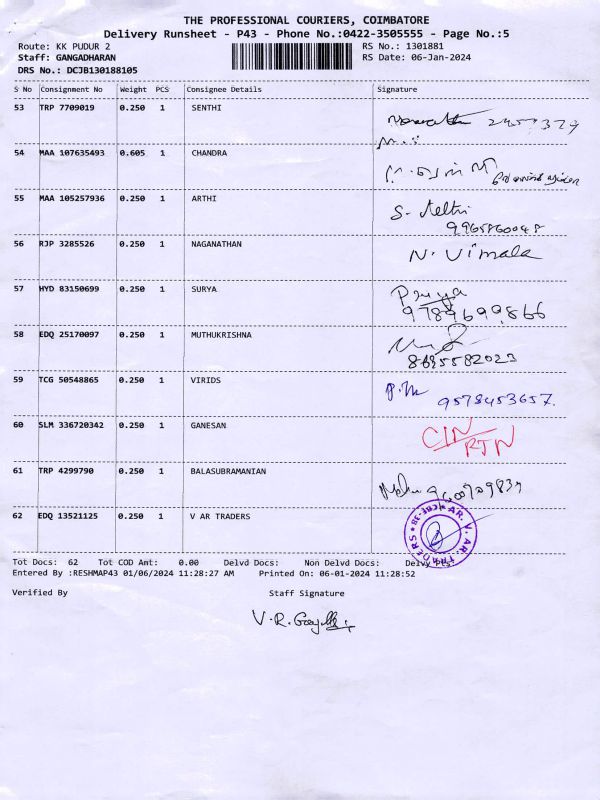 THE PROFESSIONAL COURIERS, COIMBATORE
Delivery Runsheet - P43 - Phone No.:0422-3505555 - Page No.:5
Route: KK PUDUR 2 RS No.: 1301881
Staff: GANGADHARAN RS Date: 06-Jan-2024
DRS No.: DCJB130188105
S No Consignment No Weight PCS Consignee Details Signature
53 TRP 7709019 0.250 1 SENTHI
54 MAA 107635493 0.605 1 CHANDRA
55 MAA 105257936 0.250 1 ARTHI S.
56 RJP 3285526 0.250 1 NAGANATHAN N. Vimala
57 HYD 83150699 0.250 1 SURYA Priya
9789699866
58 EDQ 25170097 0.250 1 MUTHUKRISHNA
8695582023
59 TCG 50548865 0.250 1 VIRIDS 9578453657.
60 SLM 336720342 0.250 1 GANESAN CIN
RTN
61 TRP 4299790 0.250 1 BALASUBRAMANIAN
62 EDQ 13521125 0.250 1 V AR TRADERS V. AR. TRADERS
Tot Docs: 62 Tot COD Amt: 0.00 Delvd Docs: Non Delvd Docs: Delvy
Entered By :RESHMAP43 01/06/2024 11:28:27 AM Printed On: 06-01-2024 11:28:52
Verified By Staff Signature
V.R.